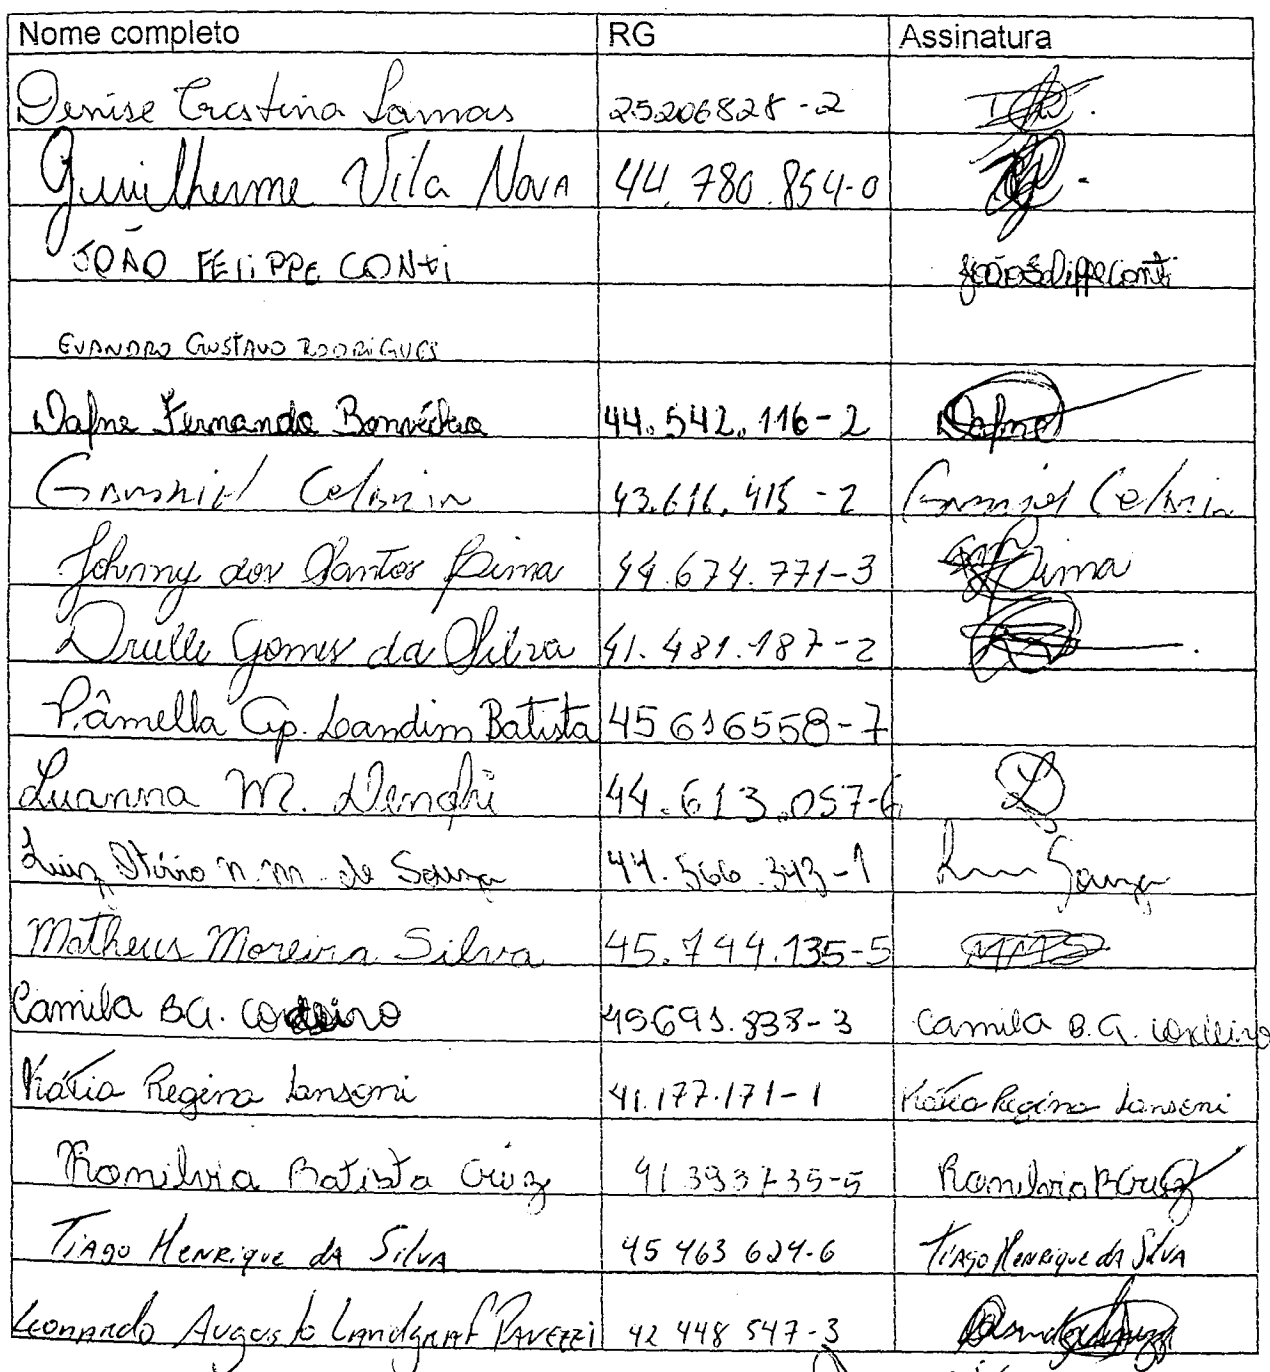 Nome completo RG Assinatura
Denise Cristina Lamas 25206828-2
Guilherme Vila Nova 44.780.854-0
JOÃO FELIPPE CONTI João Felippe Conti
EVANDRO GUSTAVO RODRIGUES
Dafne Fernanda 44.542.116-2 Dafne
43.616.415-2
Johnny dos Santos Lima 44.674.771-3 Lima
Drielle Gomes da Silva 41.481.187-2
Pâmella Ap. Landim Batista 45 616558-7
Luanna M. 44.613.057-6 L
Luiz Otávio N. M. de Souza 44.566.343-1 Souza
Matheus Moreira Silva 45.744.135-5 MMS
Camila B.G. Cordeiro 45691.838-3 Camila B.G. Cordeiro
Kátia Regina Lansoni 41.177.171-1 Kátia Regina Lansoni
Romilvia Batista Cruz 41 393735-5 Romilvia B Cruz
Tiago Henrique da Silva 45 463 624-6 Tiago Henrique da Silva
Leonardo Augusto Landgraf Pavezzi 42 448 547-3